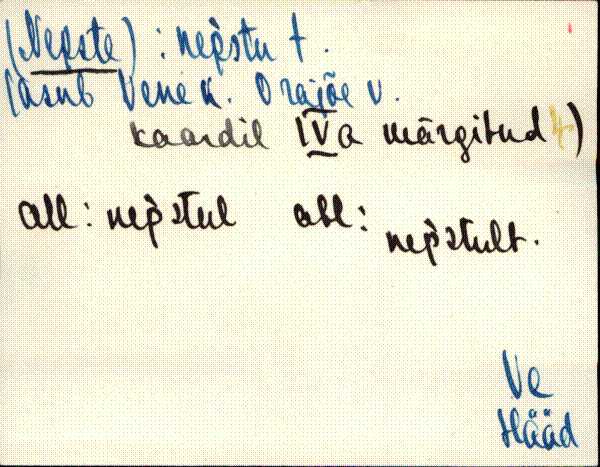 (Nepste) : nep̀stu t.
(asub Vene k. Orajõe v.
kaardil IVa märgitud 4)
all: nep̀stul abl: nep̀stult.
Ve
Hääd